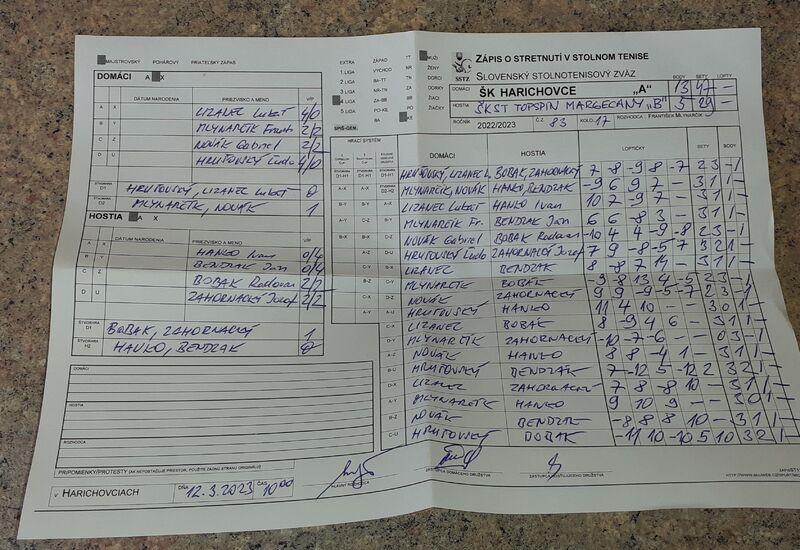 MAJSTROVSKÝ POHÁROVÝ PRIATEĽSKÝ ZÁPAS
DOMÁCI A X
DÁTUM NARODENIA PRIEZVISKO A MENO V/P
A X LIZANEC Lukáš 4/0
B Y MLYNARČÍK Frant. 2/2
C Z NOVÁK Gabriel 2/2
D U HRUŤOVSKÝ Ľudo 4/0
ŠTVORHRA D1 HRUŤOVSKÝ, LIZANEC Lukáš 0
ŠTVORHRA D2 MLYNARČÍK, NOVÁK 1
HOSTIA A X
DÁTUM NARODENIA PRIEZVISKO A MENO V/P
A X HANKO Ivan 0/4
B Y BENDZAK Ján 0/4
C Z BOBAK Radovan 2/2
D U ZAHORNACKÝ Jozef 2/2
ŠTVORHRA D1 BOBAK, ZAHORNACKÝ 1
ŠTVORHRA H2 HANKO, BENDZAK 0
DOMÁCI
HOSTIA
ROZHODCA
PRIPOMIENKY/PROTESTY (AK NEPOSTAČUJE PRIESTOR, POUŽITE ZADNÚ STRANU ORIGINÁLU)
V HARICHOVCIACH DŇA 12.3.2023 ČAS 10:00
HLAVNÝ ROZHODCA
ZÁSTUPCA DOMÁCEHO DRUŽSTVA
ZÁSTUPCA HOSŤUJÚCEHO DRUŽSTVA
EXTRA ZÁPAD TT
1.LIGA VÝCHOD NR
2.LIGA BA-TT TN
3.LIGA TN-NR ZA
4.LIGA ZA-BB BB
5.LIGA PO-KE PO
BA KE
SPIŠ-GEN.
MUŽI
ŽENY
DORCI
DORKY
ŽIACI
ŽIAČKY
SSTZ
ZÁPIS O STRETNUTÍ V STOLNOM TENISE
SLOVENSKÝ STOLNOTENISOVÝ ZVÄZ
BODY SETY LOPTY
DOMÁCI ŠK HARICHOVCE „A" 13 47 —
HOSTIA ŠKST TOPSPIN MARGECANY „B" 5 29 —
ROČNÍK 2022/2023 Č.Z. 83 KOLO 17 ROZHODCA : FRANTIŠEK MLYNARČÍK
HRACÍ SYSTÉM DOMÁCI HOSTIA LOPTIČKY SETY BODY
D1-H1 D1-H1 HRUŤOVSKÝ, LIZANEC L. BOBAK, ZAHORNACKÝ 7 -8 -9 8 -7 2 3 - 1
A-X D2-H2 MLYNARČÍK, NOVÁK HANKO, BENDZAK -9 6 9 7 - 3 1 1 -
B-Y A-X LIZANEC Lukáš HANKO Ivan 10 7 -9 7 - 3 1 1 -
A-Y C-Z B-Y MLYNARČÍK Fr. BENDZAK Ján 6 6 -8 3 - 3 1 1 -
B-X D-U C-Z NOVÁK Gabriel BOBAK Radovan -10 4 4 -9 -8 2 3 - 1
HRUŤOVSKÝ Ľudo ZAHORNACKÝ Jozef 7 9 -8 -5 7 3 2 1 -
LIZANEC BENDZAK 8 -8 7 9 - 3 1 1 -
MLYNARČÍK BOBAK -9 8 13 4 -5 2 3 - 1
NOVÁK ZAHORNACKÝ 9 9 -9 -5 -7 2 3 - 1
A-Y A-U HRUŤOVSKÝ HANKO 11 4 10 - - 3 0 1 -
C-X LIZANEC BOBAK 8 -9 4 6 - 3 1 1 -
D-Y MLYNARČÍK ZAHORNACKÝ -10 -7 -6 - - 0 3 - 1
A-Z NOVÁK HANKO 8 8 -4 1 - 3 1 1 -
B-U HRUŤOVSKÝ BENDZAK 7 -12 5 -12 2 3 2 1 -
D-X LIZANEC ZAHORNACKÝ 7 8 -8 10 - 3 1 1 -
A-Y MLYNARČÍK HANKO 9 10 9 - - 3 0 1 -
B-Z NOVÁK BENDZAK -8 8 8 10 - 3 1 1 -
C-U HRUŤOVSKÝ BOBAK -11 10 -10 5 10 3 2 1 -